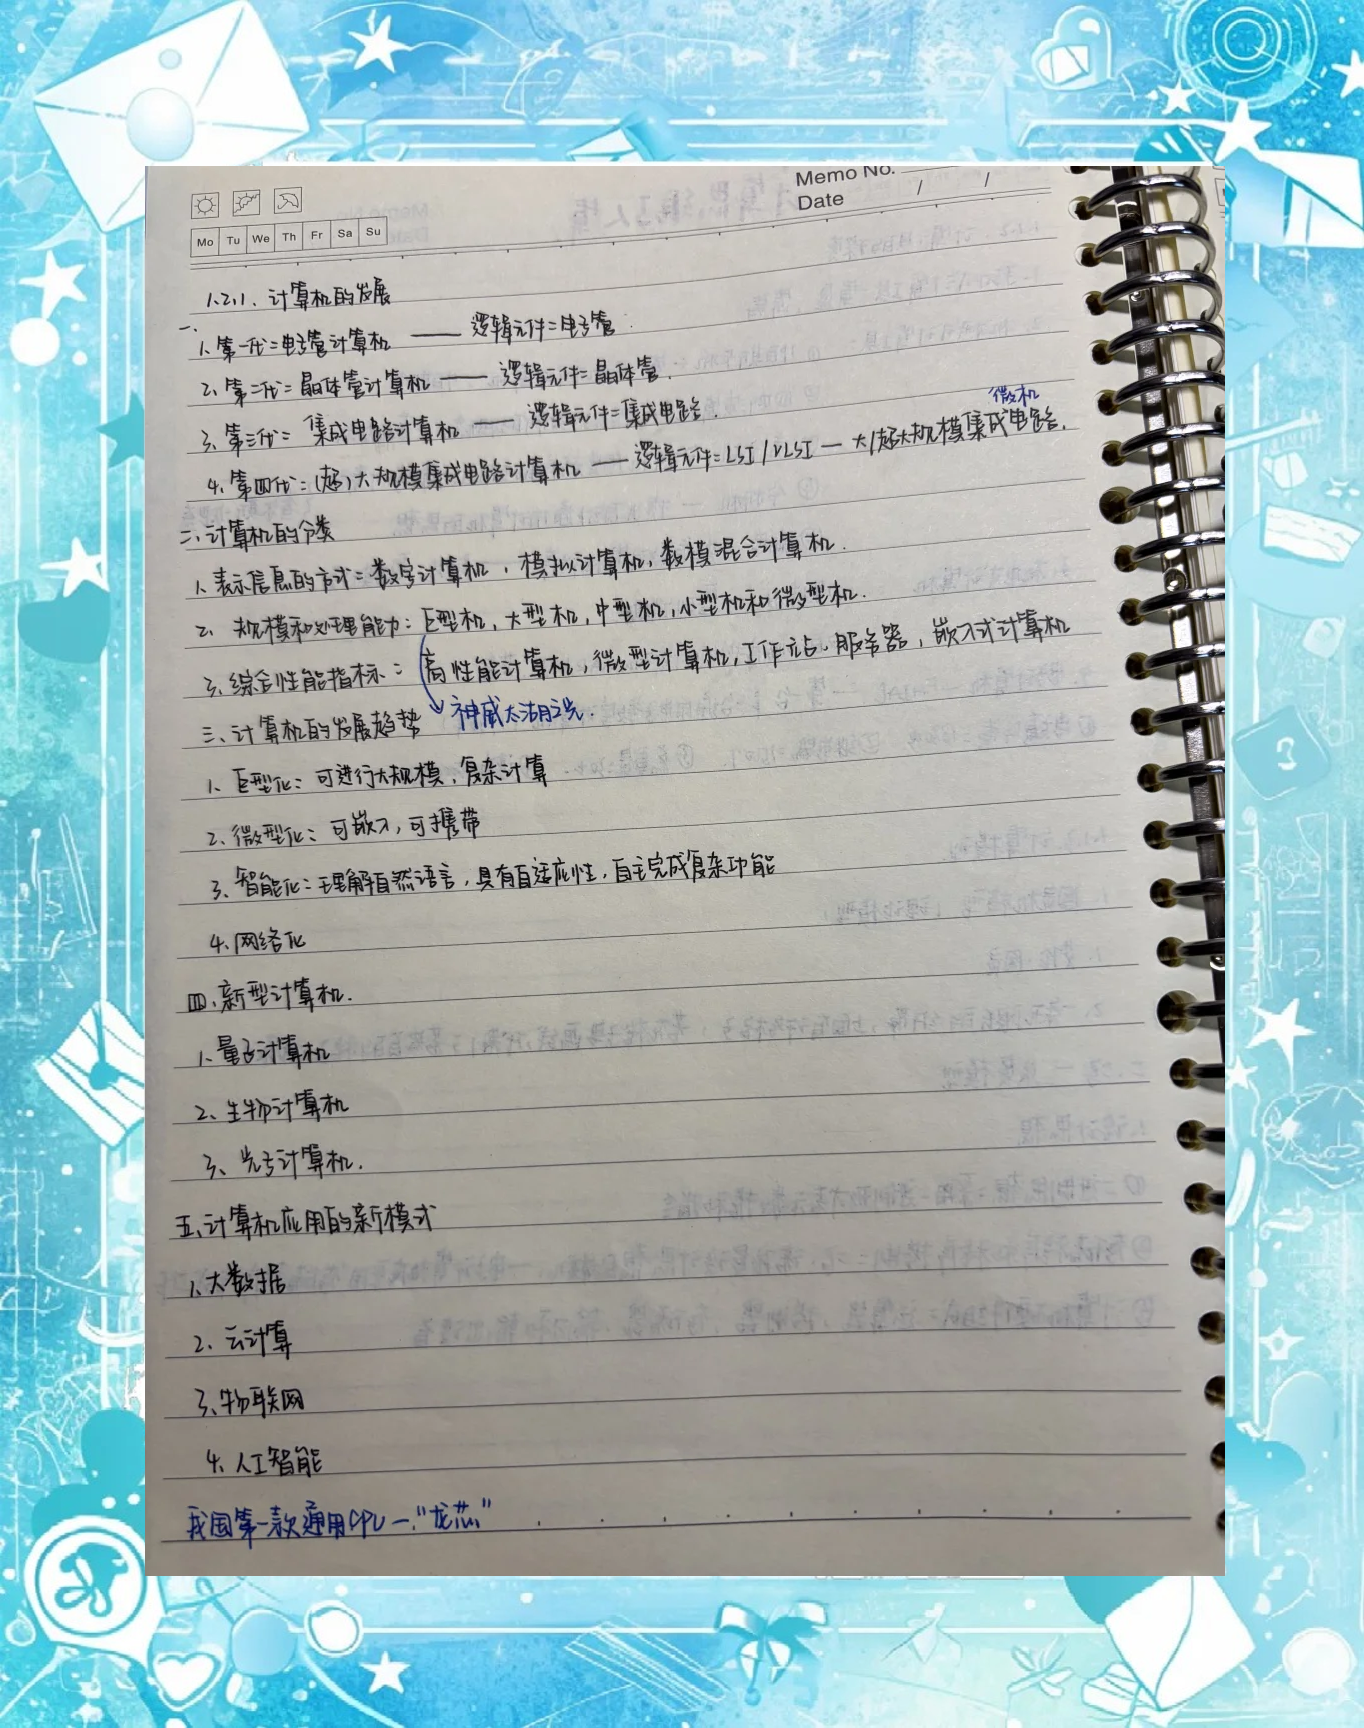 Memo No.
Date / /
Mo Tu We Th Fr Sa Su
1.2.1. 计算机的发展
一.
1、第一代=电子管计算机 —— 逻辑元件=电子管.
2、第二代=晶体管计算机 —— 逻辑元件=晶体管.
3、第三代= 集成电路计算机 —— 逻辑元件=集成电路.
微机
4、第四代=(超)大规模集成电路计算机 —— 逻辑元件=LSI/VLSI — 大/超大规模集成电路.
二、计算机的分类
1、表示信息的方式=数字计算机,模拟计算机,数模混合计算机.
2、规模和处理能力:巨型机,大型机,中型机,小型机和微型机.
3、综合性能指标:高性能计算机,微型计算机,工作站、服务器,嵌入式计算机
神威太湖之光.
三、计算机的发展趋势
1、巨型化:可进行大规模、复杂计算
2、微型化:可嵌入,可携带
3、智能化:理解自然语言,具有自适应性,自主完成复杂功能
4、网络化
四、新型计算机.
1、量子计算机
2、生物计算机
3、光子计算机.
五、计算机应用的新模式
1、大数据
2、云计算
3、物联网
4、人工智能
我国第一款通用CPU—“龙芯”